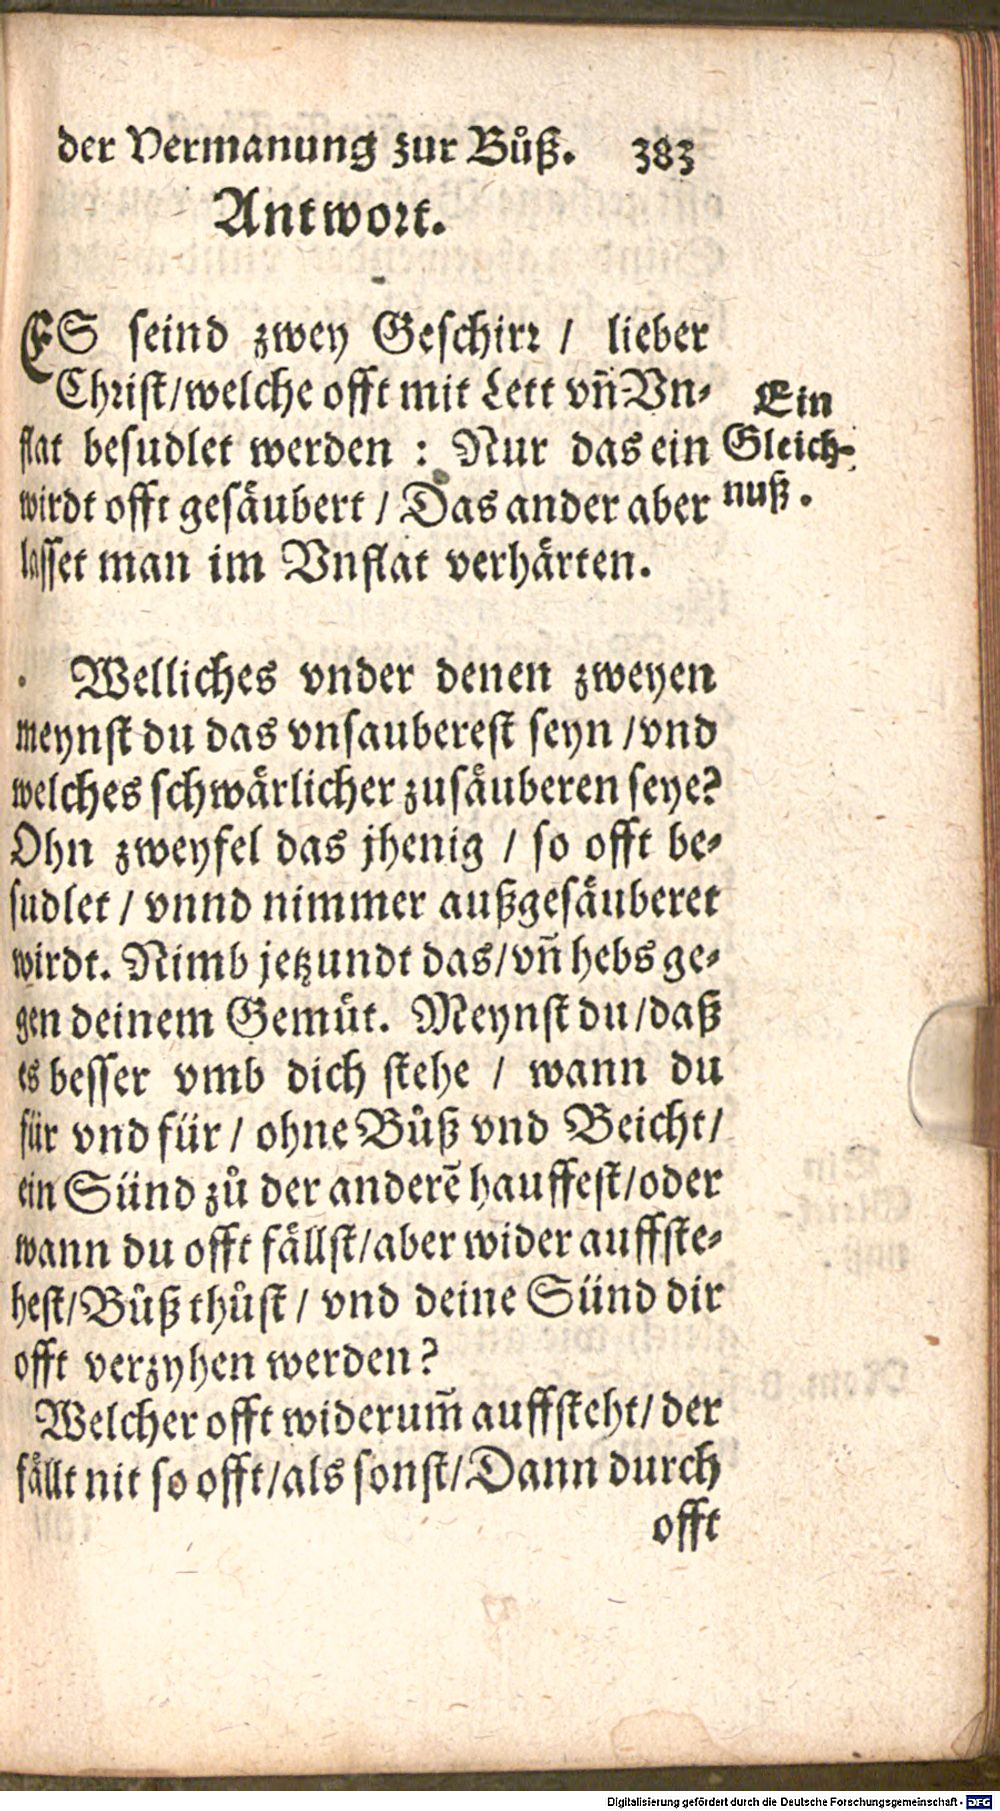 der Vermanung zur Bůß. 383
Antwort.
ES seind zwey Geschirr / lieber
Christ/welche offt mit Lett vn̄ Vn-
flat besudlet werden : Nur das ein
wirdt offt gesäubert / Das ander aber
lasset man im Vnflat verhärten.
Ein
Gleich-
nuß.
Welliches vnder denen zweyen
meynst du das vnsauberest seyn /vnd
welches schwärlicher zusäuberen seye?
Ohn zweyfel das jhenig / so offt be-
sudlet / vnnd nimmer außgesäuberet
wirdt. Nimb jetzundt das/vn̄ hebs ge-
gen deinem Gemüt. Meynst du/daß
es besser vmb dich stehe / wann du
für vnd für / ohne Bůß vnd Beicht/
ein Sünd zů der anderē hauffest/oder
wann du offt fällst/aber wider auffste-
hest/Bůß thůst / vnd deine Sünd dir
offt verzyhen werden?
Welcher offt widerum̄ auffsteht/der
fällt nit so offt/als sonst/Dann durch
offt
Digitalisierung gefördert durch die Deutsche Forschungsgemeinschaft - DFG